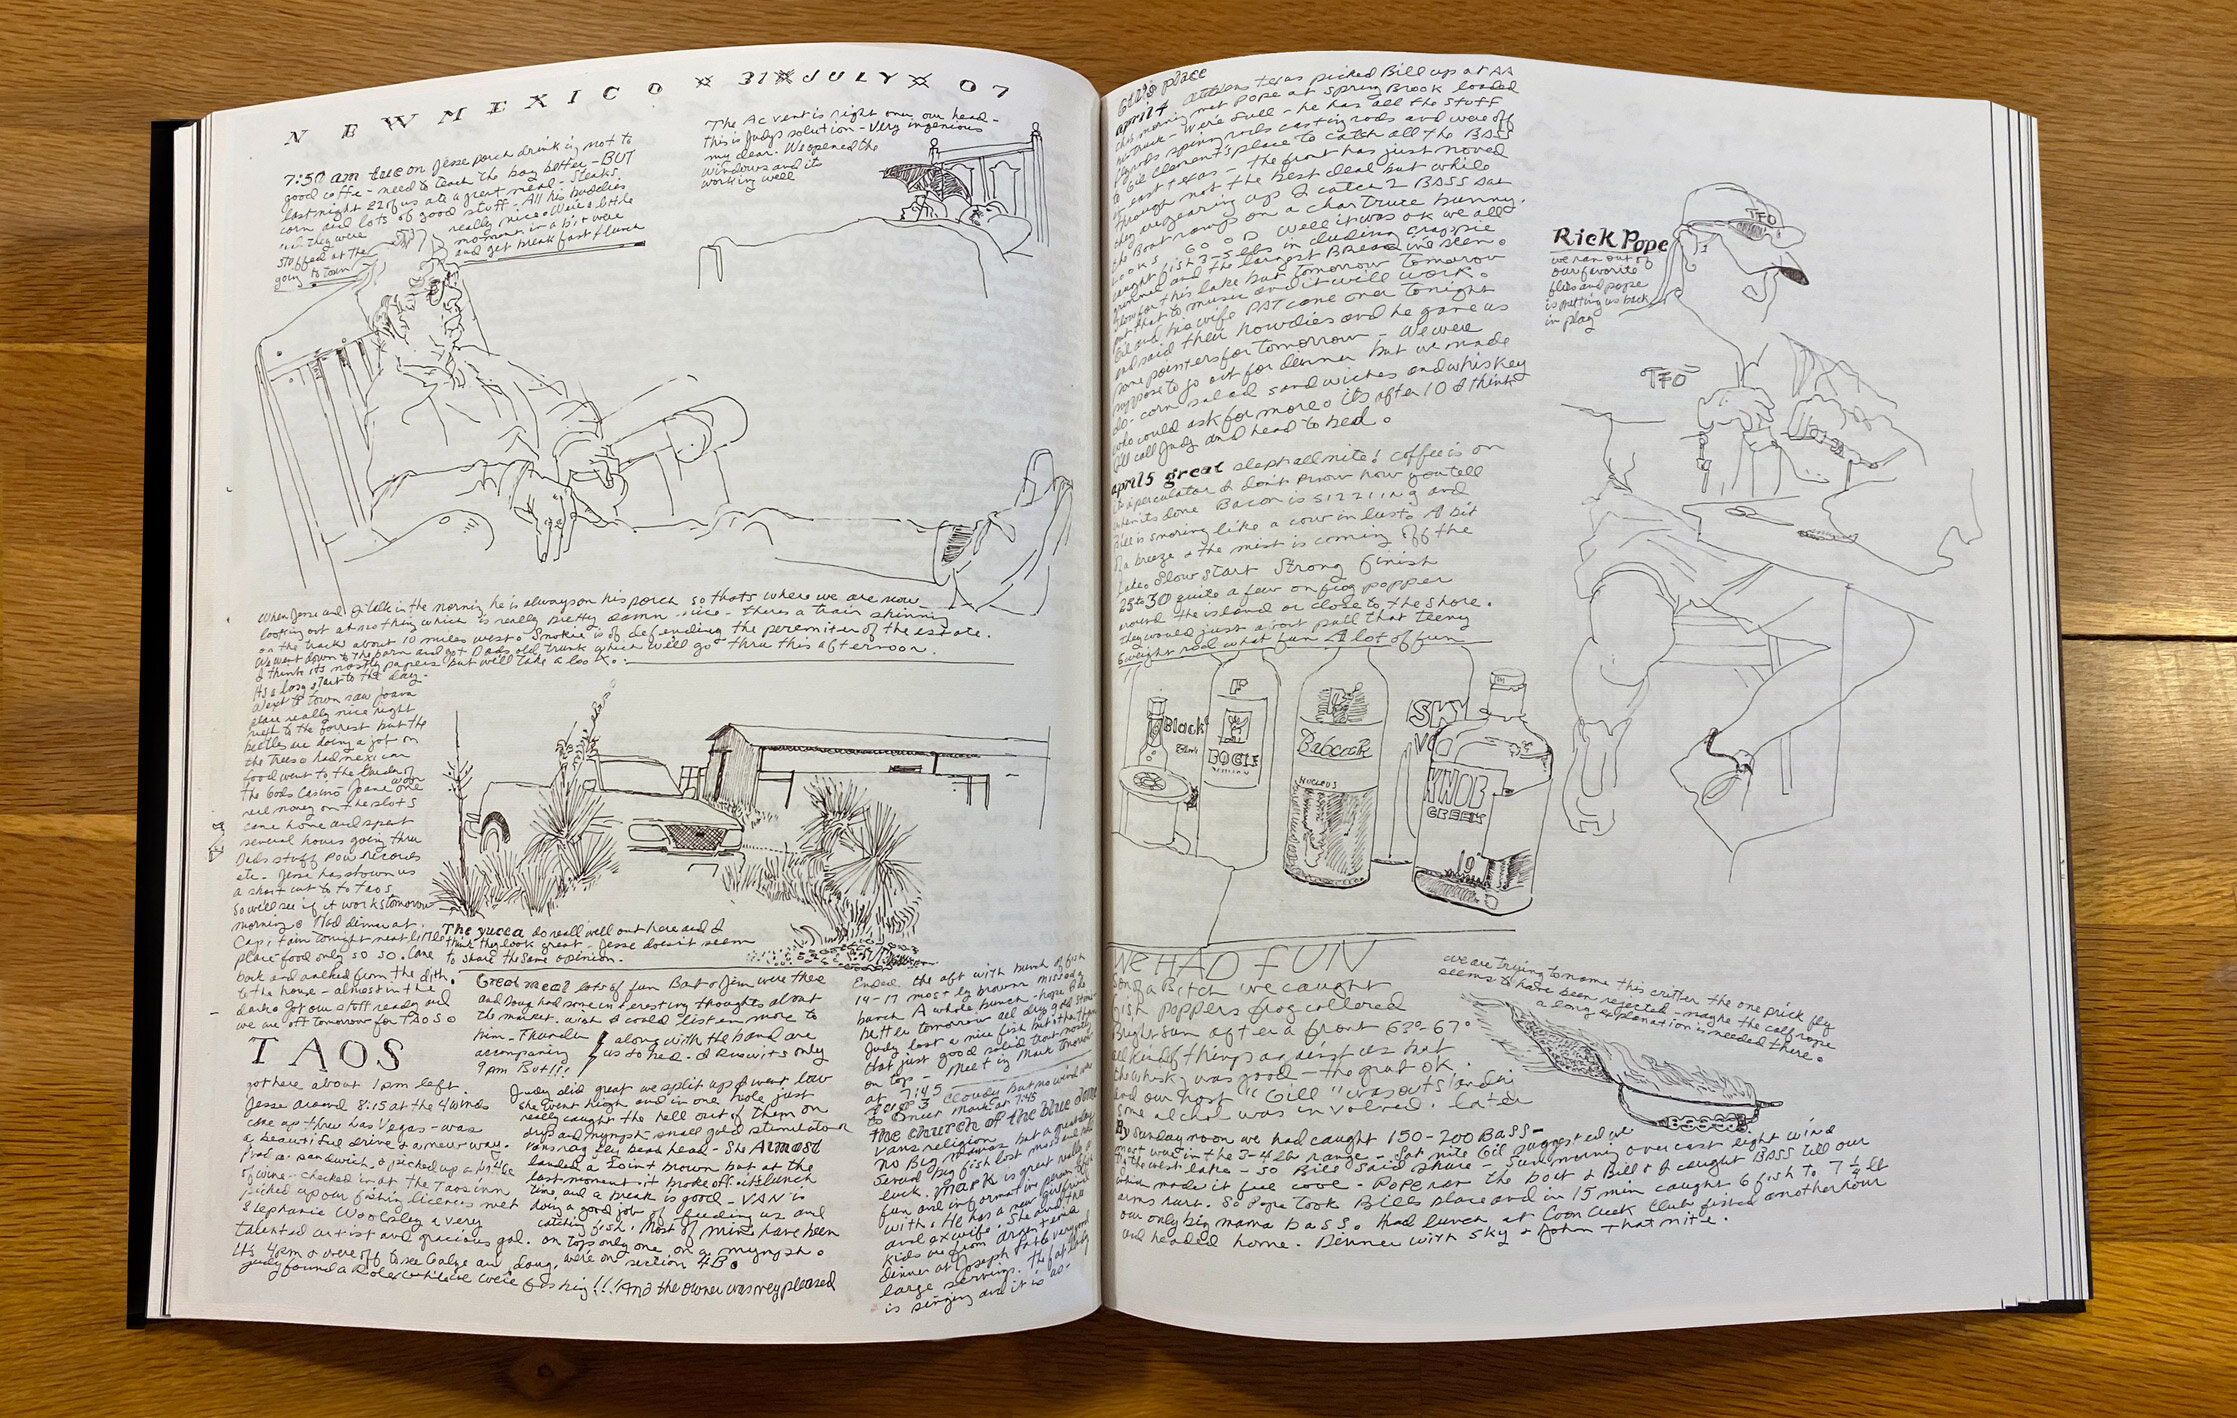 NEW MEXICO ¤ 31 JULY ¤ 07
7:50 am tue on Jesse porch drink is not to
good coffe - need to teach the boy better - BUT
last night 22 of us ate a great meal - Steaks
corn and lots of good stuff - All his buddies
and they were really nice. We're a little
stoffed at the moment in a bit were
going to town and get breakfast & lunch
The AC vent is right over our head -
this is Judy's solution - Very ingenious
my dear. We opened the
windows and its
working well
When Jesse and I talk in the morning he is always on his porch so thats where we are now
looking out at nothing which is really pretty damn nice - theres a train shinning
on the tracks about 10 miles west. Smokie is defending the peremiter of the estate.
We went down to the barn and got Dads old trunk which will go thru this afternoon.
I think its mostly papers but will take a look.
Its a long start to the day.
Went to town saw Joann
place really nice right
next to the forrest but the
beetles are doing a job on
the trees. had mexican
food went to the Garden of
the Gods Casino Joann won
real money on the slots
came home and spent
several hours going thru
Dads stuff POW records
etc. Jesse has shown us
a short cut to to Taos
so will see if it works tomorrow
morning. Had dinner at
Capitan tonight neat little
place - food only so so. Came
back and walked from the
to the house - almost in the
dark. Got our stuff ready and
we are off tomorrow for TAOS.
The yucca do really well out here and I
think they look great - Jesse doesn't seem
to share the same opinion.
TAOS
got here about 1 pm left
Jesse around 8:15 at the 4 winds
came up thru Las Vegas - was
a beautiful drive & a new way.
Had a sandwich & picked up a bottle
of wine - checked in at the Taos inn
picked up our fishing licenes met
Stephanie Woolsley a very
talented artist and gracious gal.
Its 4 pm & were off to see Galye and doug.
Great meal lots of fun Bart & Jim were there
and Doug had some interesting thoughts about
the market. wish I could listen more to
him - Thunder along with the band are
accompaning us to bed. -
9 pm But!!!
Judy did great we split up I went low
she went high and in one hole just
really caught the hell out of them on
drys and nymphs - small gold stimulator
vans rag fly bead head - She ALMOST
landed a 20 inch brown but at the
last moment it broke off. its lunch
time and a break is good - VAN is
doing a good job of feeding us and
catching fish. Most of mine have been
on tops only one on a nymph.
were on section 4B.
And the owner was very pleased
Ended the aft with bunch of fish
14-17 mostly browns missed a
bunch A whole bunch - hope to do
better tomorrow all dry gold stim-
Judy lost a nice fish but other than
that just good solid trout mostly
on top - Meeting Mark tomorrow
at 7:45
cloudy but no wind
the church of the blue dome
vans religion
No Big mamas but a great day
luck. Mark is great really a
fun and informative person
with. He has a new girlfriend
and exwife. She and two
kids are from
dinner at Joseph table very good
large servings. The fat lady
is singing and it is as-
Gil's place
april 4 Athens Texas picked Bill up at AA
this morning met Pope at Spring Brook loaded
his truck - We're full - he has all the stuff
flyrods spinning rods casting rods and were off
to Gil Clement's place to catch all the BASS
in east texas - the front has just moved
through not the best deal but while
they are gearing up I catch 2 BASS
the Boat ramp on a chartruce bunny.
LOOKS GOOD Well it was ok we all
caught fish 3-5 lbs in cluding crappie
and the largest Bream ive seen.
slow for this lake but tomorrow Tomorow
put that to music and it will work.
Gil and his wife PAT came over Tonight
and said their howdies and he gave us
some pointers for tomorrow - We were
suppose to go out for dinner but we made
do - corn salad sandwiches and whiskey
who could ask for more. its after 10 I think
Ill call Judy and head to bed.
april 5 great sleep all nite! Coffee is on
its a perculator & don't know how you tell
when its done Bacon is sizzling and
Bill is snoring like a cow in lust. A bit
of a breeze & the mist is coming off the
lake. Slow start Strong finish
25 to 30 quite a few on frog popper
around the island or close to the shore.
they would just about pull that teeny
6 weight rod what fun A lot of fun
Rick Pope
we ran out of
our favorite
flies and pope
is putting us back
in play
TFO
TFO
Black
F
BOGLE
Babcock
SKY
KNOB
CREEK
WE HAD FUN
Son of a Bitch we caught
fish poppers frog collored
Bright sun after a front 63°-67°
all kind of things against us but
the whisky was good - the grub ok
and our host "Gill" was outstanding
some alchol was involved. Later
we are trying to name this critter the one prick fly
seems to have been rejected - maybe the calf rope
a long explanation is needed there.
By sunday noon we had caught 150-200 BASS -
most was in the 3-4 lb range - Sat nite Gil suggested we
fly the west lake - so Bill said share - Sun morning over cast light wind
which made it feel cool - Pope ran the boat & Bill & I caught BASS till our
arms hurt. So Pope took Bills place and in 15 min caught 6 fish to 7 1/4 lb
our only big mama bass. Had lunch at Coon Creek Club fished another hour
and headed home. Dinner with Sky & John that nite.